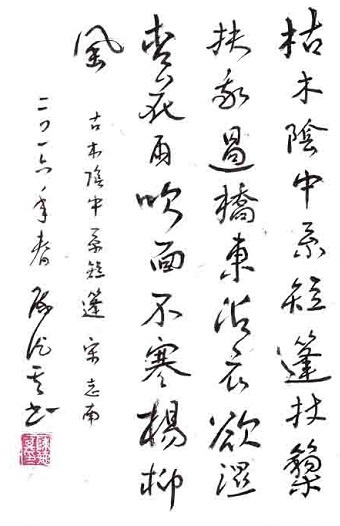 枯木陰中系短篷杖藜
扶我過橋東沾衣欲濕
杏花雨吹面不寒楊柳
風
古木陰中系短篷 宋 志南
二〇一六年春 書